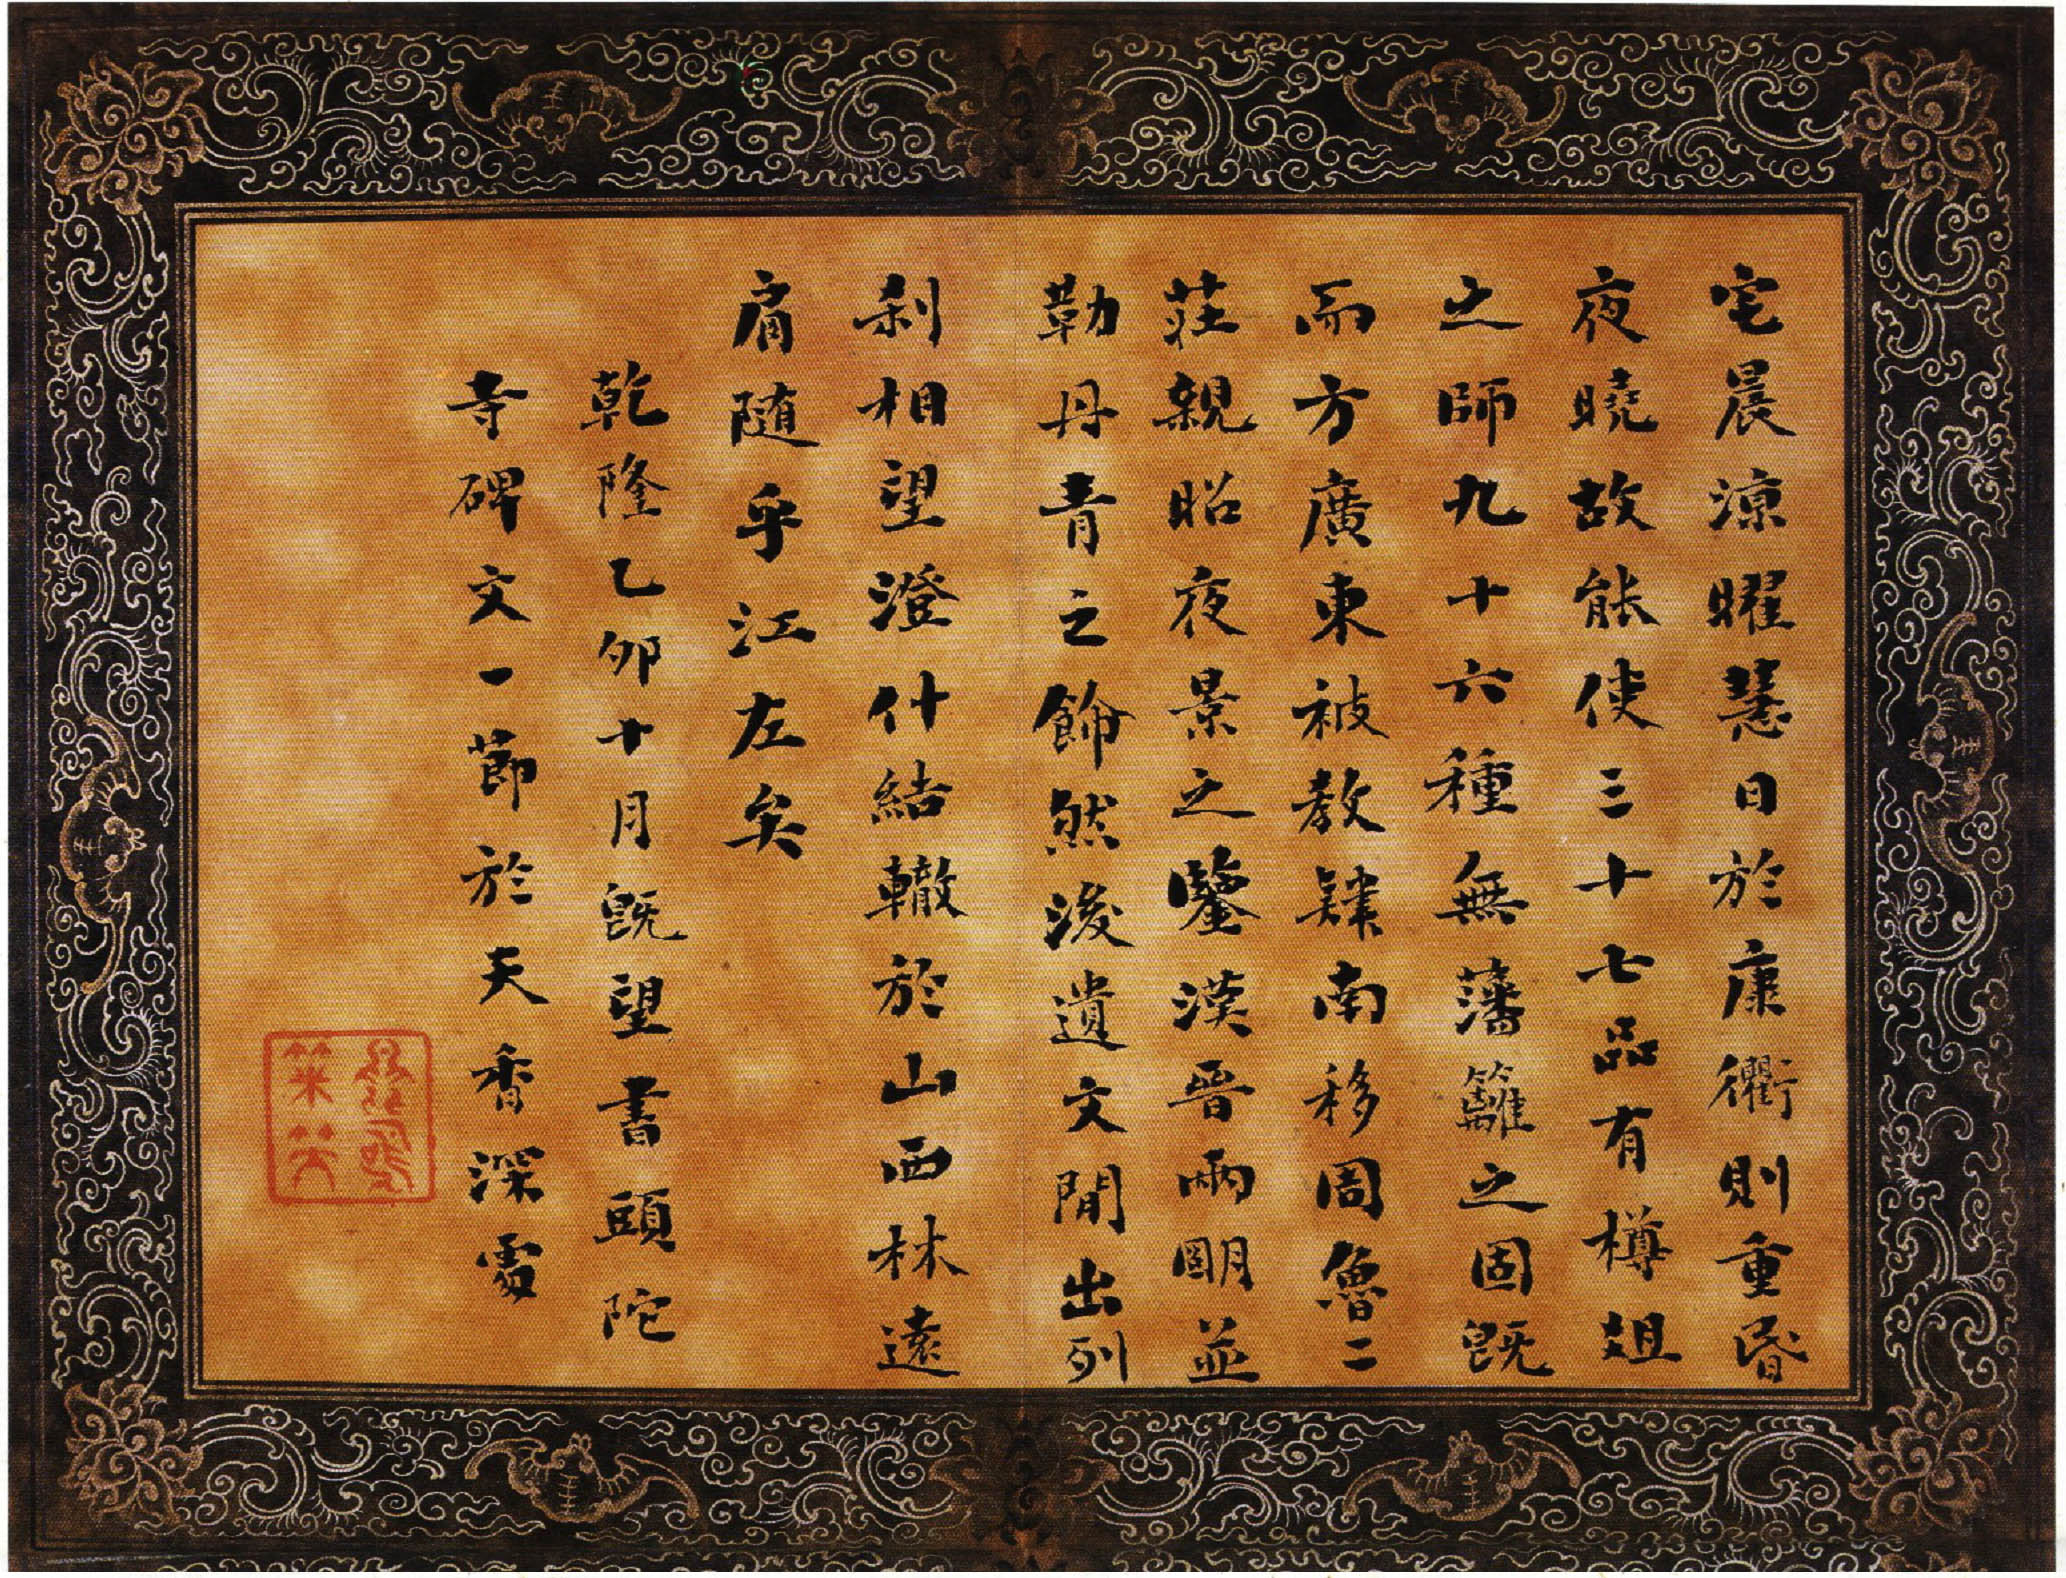 宅晨涼曜慧日於康衢則重昏
夜曉故能使三十七品有樽俎
之師九十六種無藩籬之固既
而方廣東被教肄南移周魯二
莊親昭夜景之鑒漢晉兩明並
勒丹青之飾然後遺文間出列
刹相望澄什結轍於山西林遠
肩隨乎江左矣
乾隆乙卯十月既望書頭陀
寺碑文一節於天香深處